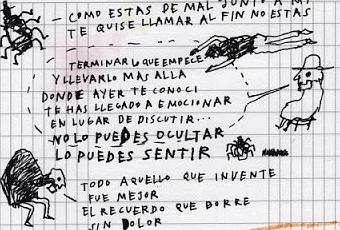 - COMO ESTAS DE MAL JUNTO A MI
TE QUISE LLAMAR AL FIN NO ESTAS
TERMINAR LO QUE EMPECE
Y LLEVARLO MAS ALLA
DONDE AYER TE CONOCI
TE HAS LLEGADO A EMOCIONAR
EN LUGAR DE DISCUTIR...
NO LO PUEDES OCULTAR
LO PUEDES SENTIR
TODO AQUELLO QUE INVENTE
FUE MEJOR
EL RECUERDO QUE BORRE
SIN DOLOR